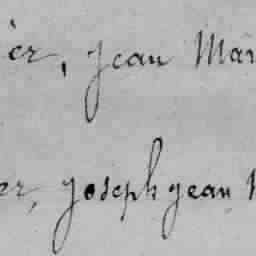 er, Jean Mar
er, Joseph jean